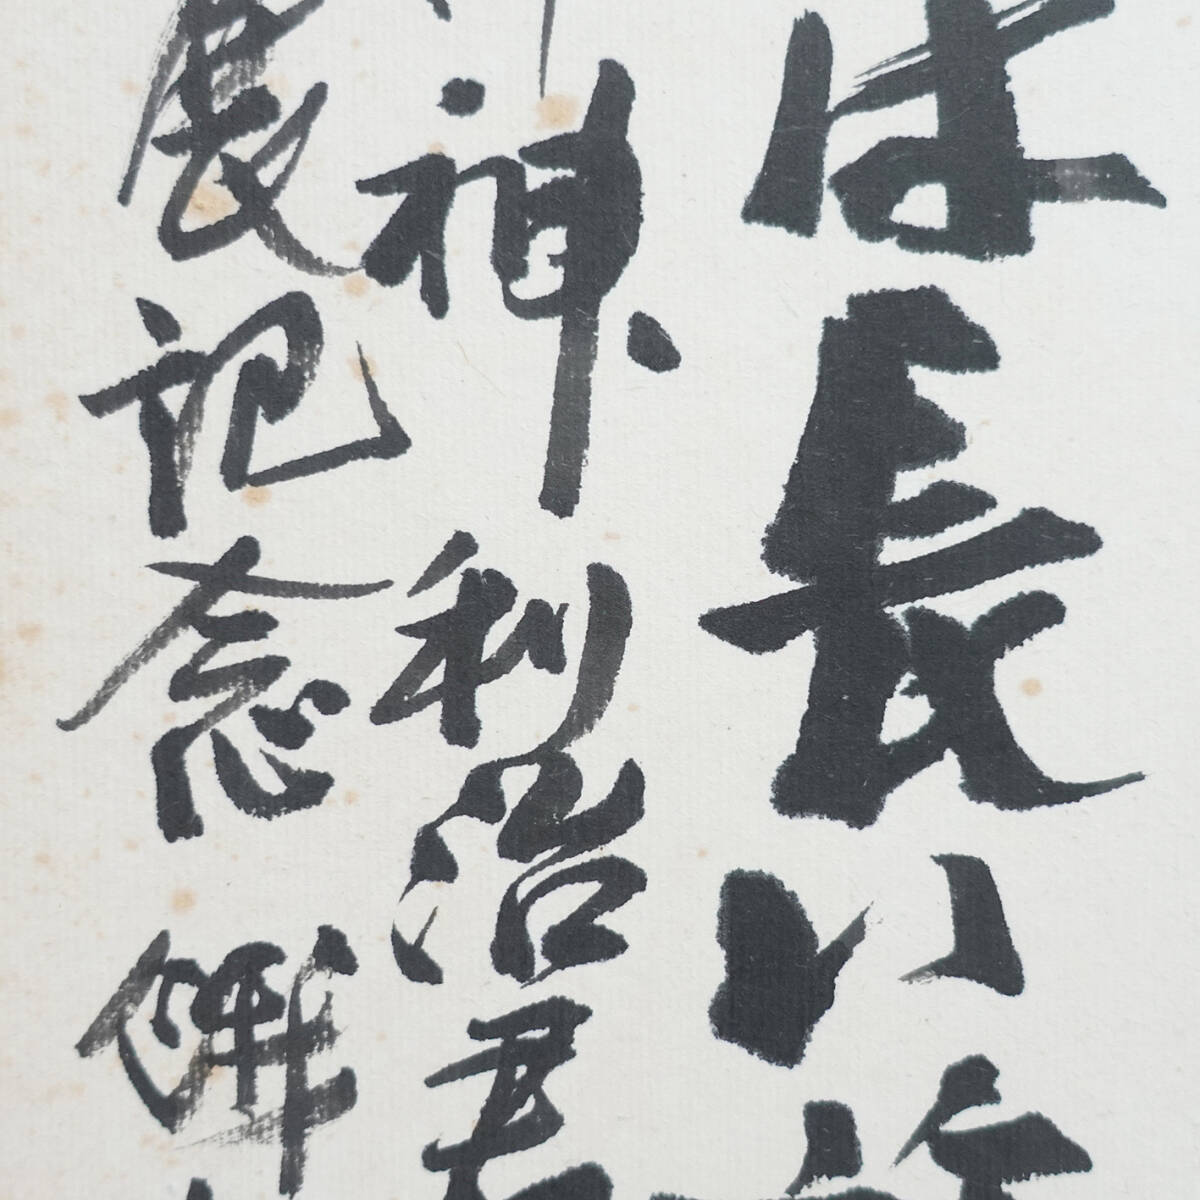 は長い
神、利治君
展記念